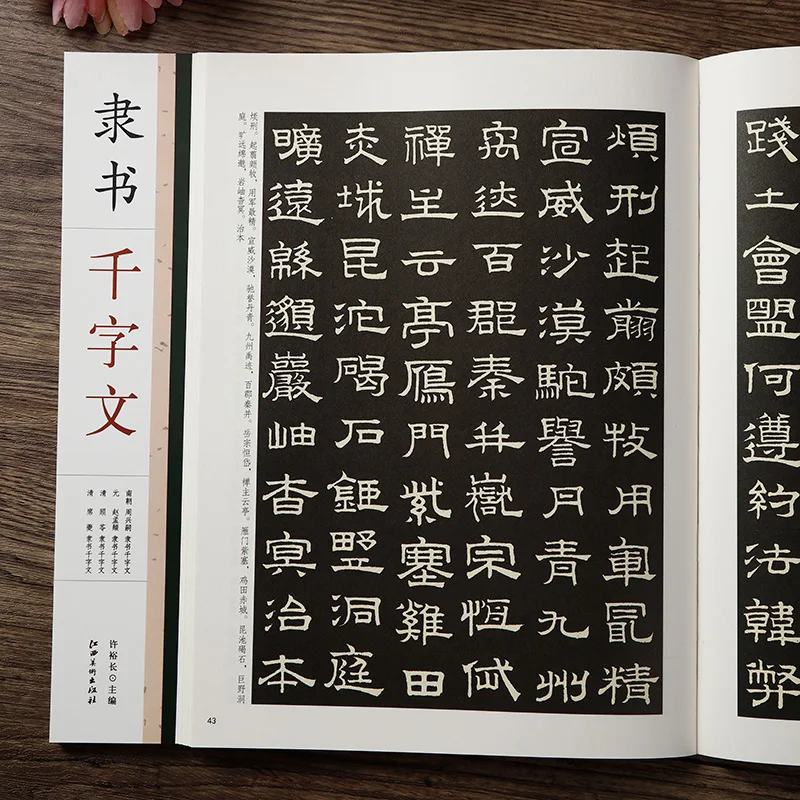 隶书
千字文
南朝 周兴嗣 隶书千字文
元 赵孟頫 隶书千字文
清 顾苓 隶书千字文
清 席夔 隶书千字文
许裕长⊙主编
江西美術出版社
踐土會盟何遵約法韓弊
煩刑起翦頗牧用軍最精
宣威沙漠馳譽丹青九州
禹迹百郡秦并嶽宗恆岱
禪主云亭鴈門紫塞雞田
赤城昆池碣石鉅野洞庭
曠遠緜邈巖岫杳冥治本
烦刑。起翦颇牧，用军最精。宣威沙漠，驰誉丹青。九州禹迹，百郡秦并。岳宗恒岱，禅主云亭。雁门紫塞，鸡田赤城。昆池碣石，巨野洞
庭。旷远绵邈，岩岫杳冥。治本
43